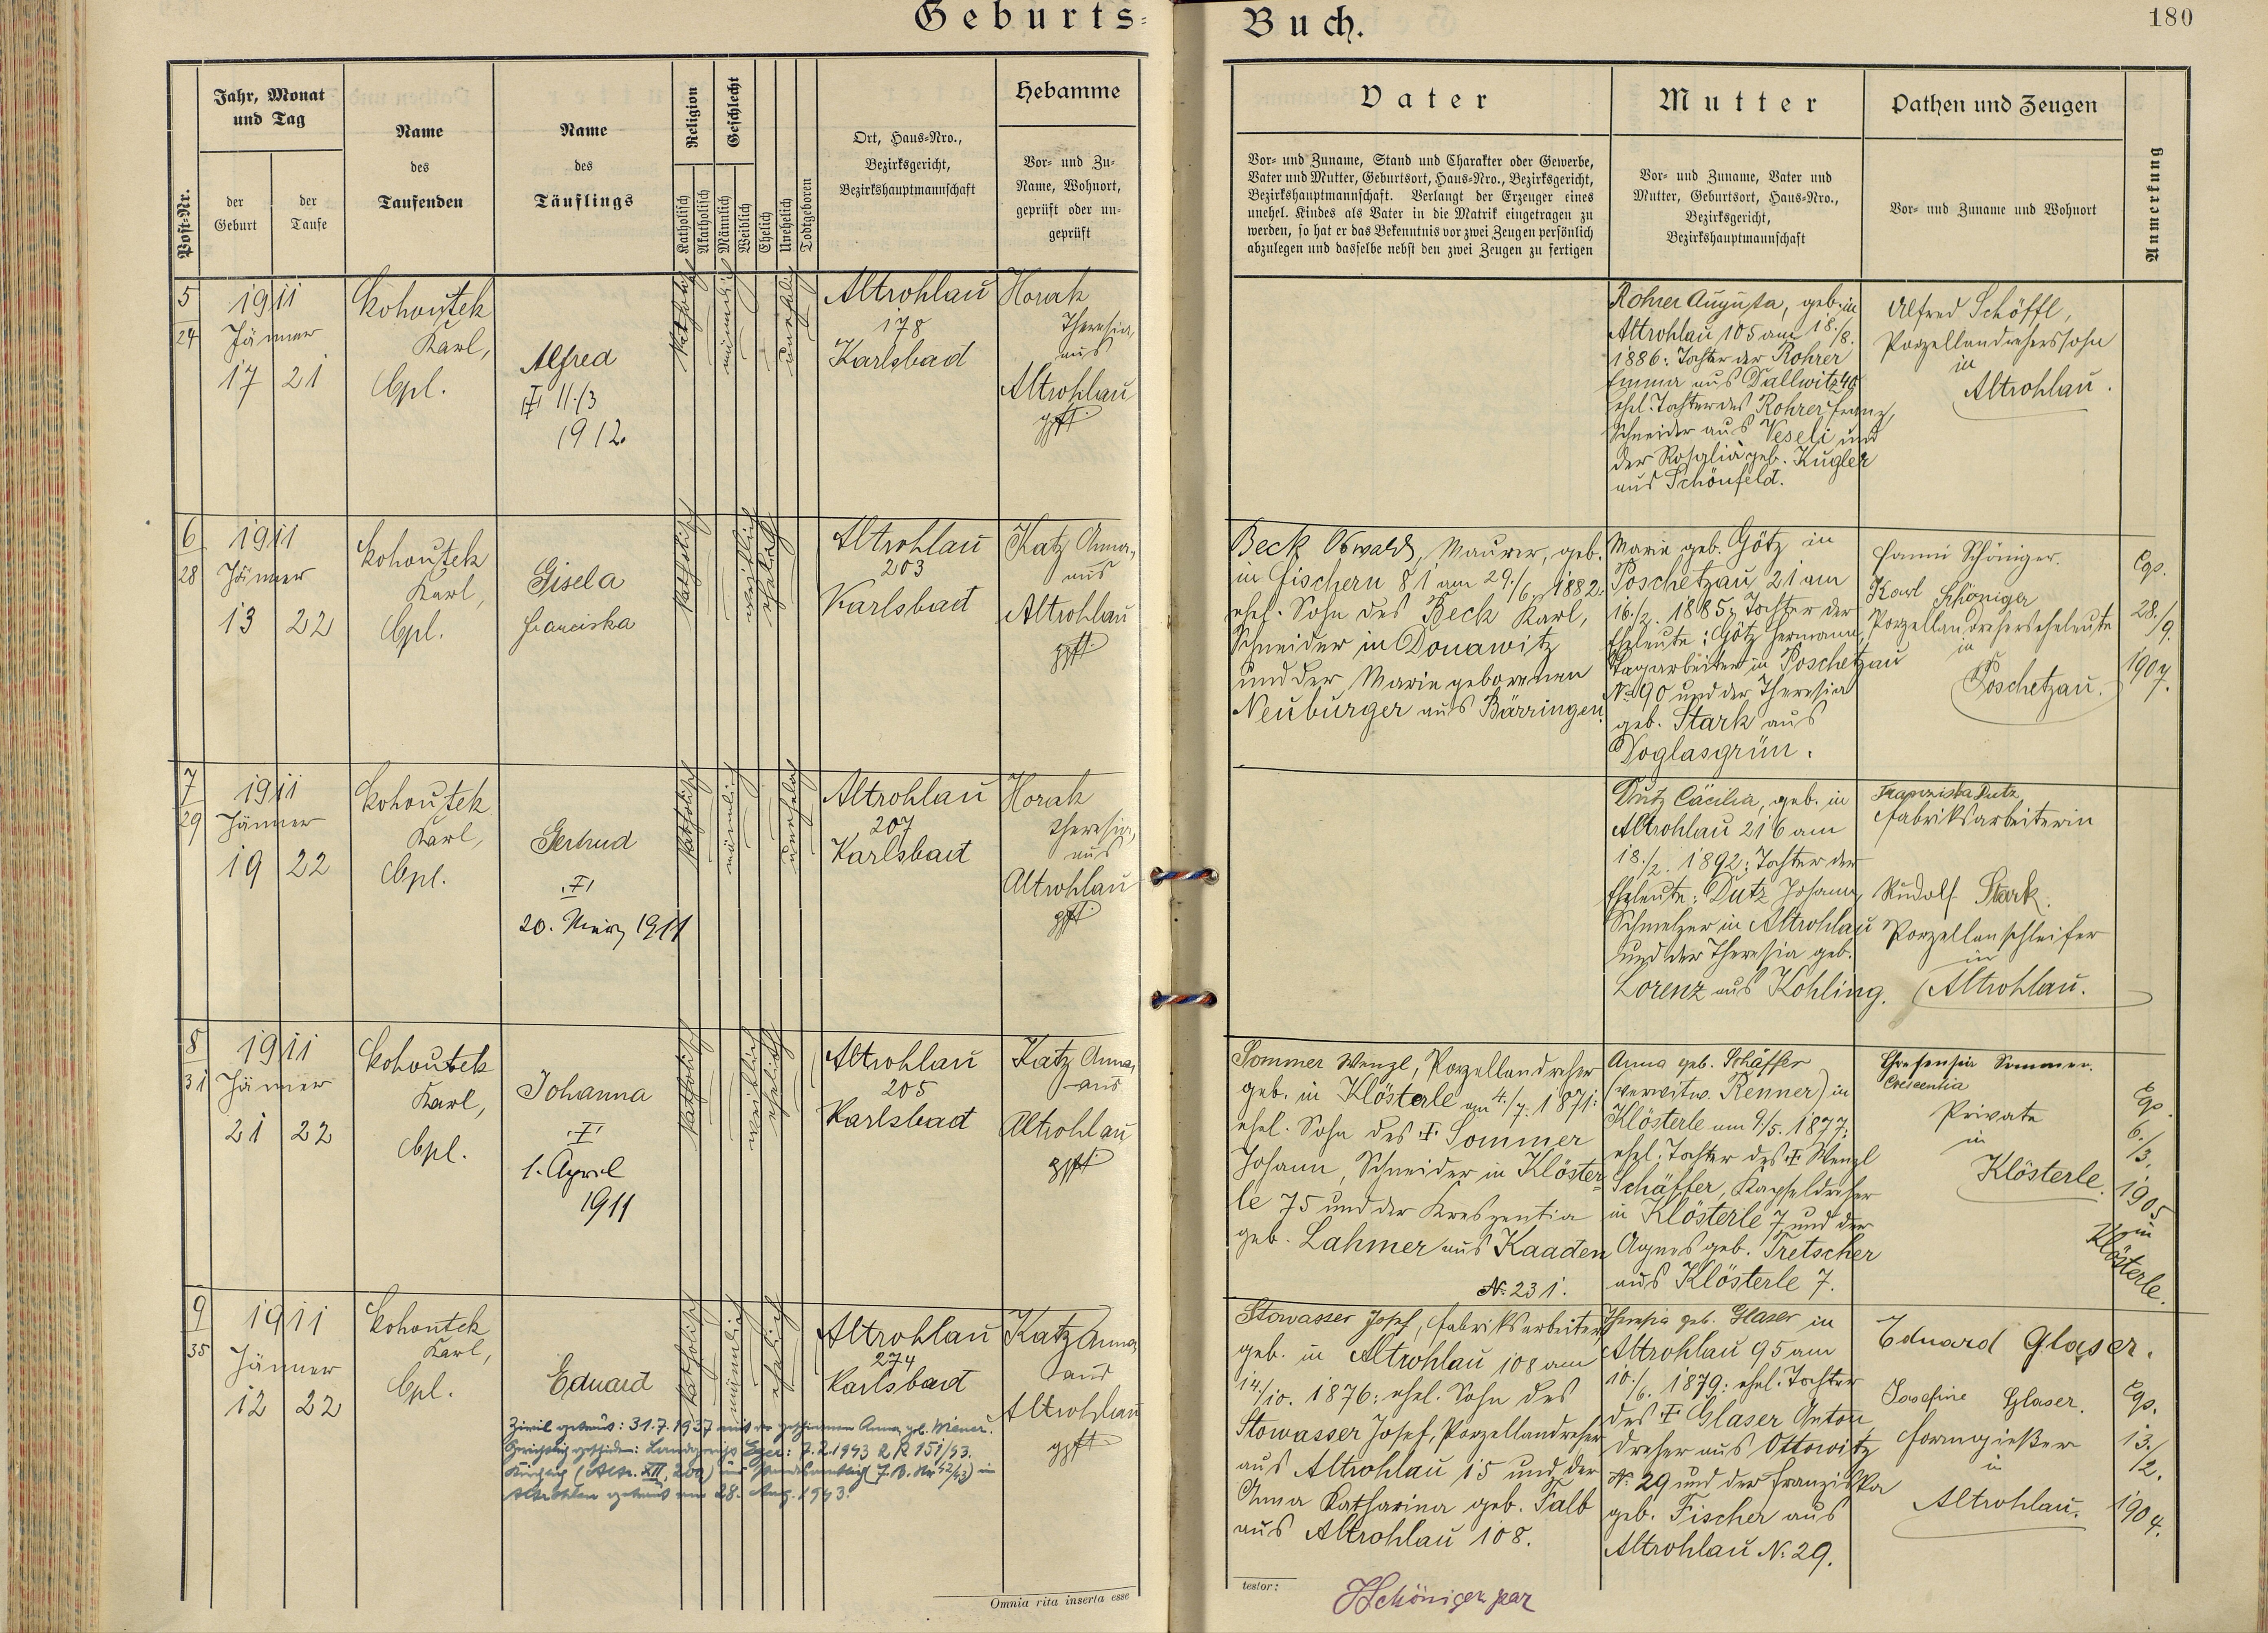 Geburts-
Buch.
180
Post-Nr.
Jahr, Monat
und Tag
der
Geburt
der
Taufe
Name
des
Taufenden
Name
des
Täuflings
Religion
Katholisch
Akatholisch
Geschlecht
Männlich
Weiblich
Ehelich
Unehelich
Todtgeboren
Ort, Haus-Nro.,
Bezirksgericht,
Bezirkshauptmannschaft
Hebamme
Vor- und Zu-
Name, Wohnort,
geprüft oder un-
geprüft
Vater
Vor- und Zuname, Stand und Charakter oder Gewerbe,
Vater und Mutter, Geburtsort, Haus-Nro., Bezirksgericht,
Bezirkshauptmannschaft. Verlangt der Erzeuger eines
unehel. Kindes als Vater in die Matrik eingetragen zu
werden, so hat er das Bekenntnis vor zwei Zeugen persönlich
abzulegen und dasselbe nebst den zwei Zeugen zu fertigen
Mutter
Vor- und Zuname, Vater und
Mutter, Geburtsort, Haus-Nro.,
Bezirksgericht,
Bezirkshauptmannschaft
Pathen und Zeugen
Vor- und Zuname und Wohnort
Anmerkung
5
24
1911
Jänner
17 21
Kohoutek
Karl,
Cpl.
Alfred
11./3
1912.
katholisch
männlich
unehelich
Altrohlau
178
Karlsbad
Horak
Theresia,
aus
Altrohlau
gpft
Rohrer Augusta, geb. in
Altrohlau 105 am 18./8.
1886: Tochter der Rohrer
Emma aus Dallwitz 40
ehel. Tochter des Rohrer Franz,
Schneider aus Veseli und
der Rosalia geb. Kugler
aus Schönfeld.
Alfred Schöffl,
Porzellandreherssohn
in
Altrohlau.
6
28
1911
Jänner
13 22
Kohoutek
Karl,
Cpl.
Gisela
Franciska
katholisch
weiblich
ehelich
Altrohlau
203
Karlsbad
Katz Anna,
aus
Altrohlau
gpft.
Beck Oswald, Maurer, geb.
in Fischern 81 am 29./6. 1882:
ehel. Sohn des Beck Karl,
Schneider in Donawitz
und der Marie geborenen
Neuburger aus Bärringen.
Marie geb. Götz in
Poschetzau 21 am
16./2. 1885; Tochter der
Eheleute: Götz Hermann,
Tagarbeiter in Poschetzau
No 90 und der Theresia
geb. Stark aus
Doglasgrün.
Fanni Schöniger.
Karl Schöniger
Porzellandreherseheleute
in
Poschetzau.
Cgs.
28./
9.
1907.
7
29
1911
Jänner
19 22
Kohoutek
Karl,
Cpl.
Gertrud
20. März 1911
katholisch
männlich
unehelich
Altrohlau
207
Karlsbad
Horak
Theresia,
aus
Altrohlau
gpft
Dutz Cäcilia, geb. in
Altrohlau 216 am
18./2. 1892; Tochter der
Eheleute: Dutz Johann,
Schmelzer in Altrohlau
und der Theresia geb.
Lorenz aus Kohling.
Franziska Dutz
Fabriksarbeiterin
Rudolf Stark.
Porzellanschleifer
in
Altrohlau.
8
31
1911
Jänner
21 22
Kohoutek
Karl,
Cpl.
Johanna
1. April
1911
katholisch
weiblich
ehelich
Altrohlau
205
Karlsbad
Katz Anna,
aus
Altrohlau
gpft
Sommer Wenzl, Porzellandreher
geb. in Klösterle am 4./7. 1871:
ehel. Sohn des Sommer
Johann, Schneider in Klöster-
le 75 und der Kreszentia
geb. Lahmer aus Kaaden
No. 231.
Anna geb. Schäffer
(verwitw. Renner) in
Klösterle am 9./5. 1877;
ehel. Tochter des Wenzl
Schäffer, Kapseldreher
in Klösterle 7 und der
Agnes geb. Tretscher
aus Klösterle 7.
Chresensia Sommer.
Crescentia
Private
in
Klösterle.
Cgs.
6./
3.
1905
in
Klösterle.
9
35
1911
Jänner
12 22
Kohoutek
Karl,
Cpl.
Eduard
Zivil getraut: 31.7.1937 mit der geschiedenen Anna geb. Wiener.
Gerichtlich geschieden: Landgericht Eger: 7.2.1943 2 R 151/43.
Kirchlich (Altr. XII, 200) und standesamtlich (F.B. Nr 42/43) in
Altrohlau getraut am 28. Aug. 1943.
katholisch
männlich
ehelich
Altrohlau
274
Karlsbad
Katz Anna,
aus
Altrohlau
gpft
Stowasser Josef, Fabriksarbeiter
geb. in Altrohlau 108 am
14./10. 1876: ehel. Sohn des
Stowasser Josef, Porzellandreher
aus Altrohlau 15 und der
Anna Katharina geb. Falb
aus Altrohlau 108.
Theresia geb. Glaser in
Altrohlau 95 am
10./6. 1879: ehel. Tochter
des Glaser Anton
Dreher aus Ottowitz
No. 29 und der Franziska
geb. Fischer aus
Altrohlau No. 29.
Eduard Glaser.
Josefine Glaser.
Formgießer
in
Altrohlau.
Cgs.
13./
2.
1904.
Omnia rita inserta esse
testor:
Schöniger par